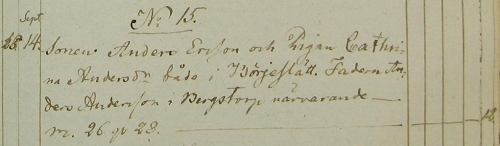 Sept
No 15.
28. 14. Sonen Anders Ericson och Pigan Cathri-
na Andersdr båda i Börjeslätt. Fadern An-
ders Anderson i Bergstorp närvarande —
m. 26 qv 28.